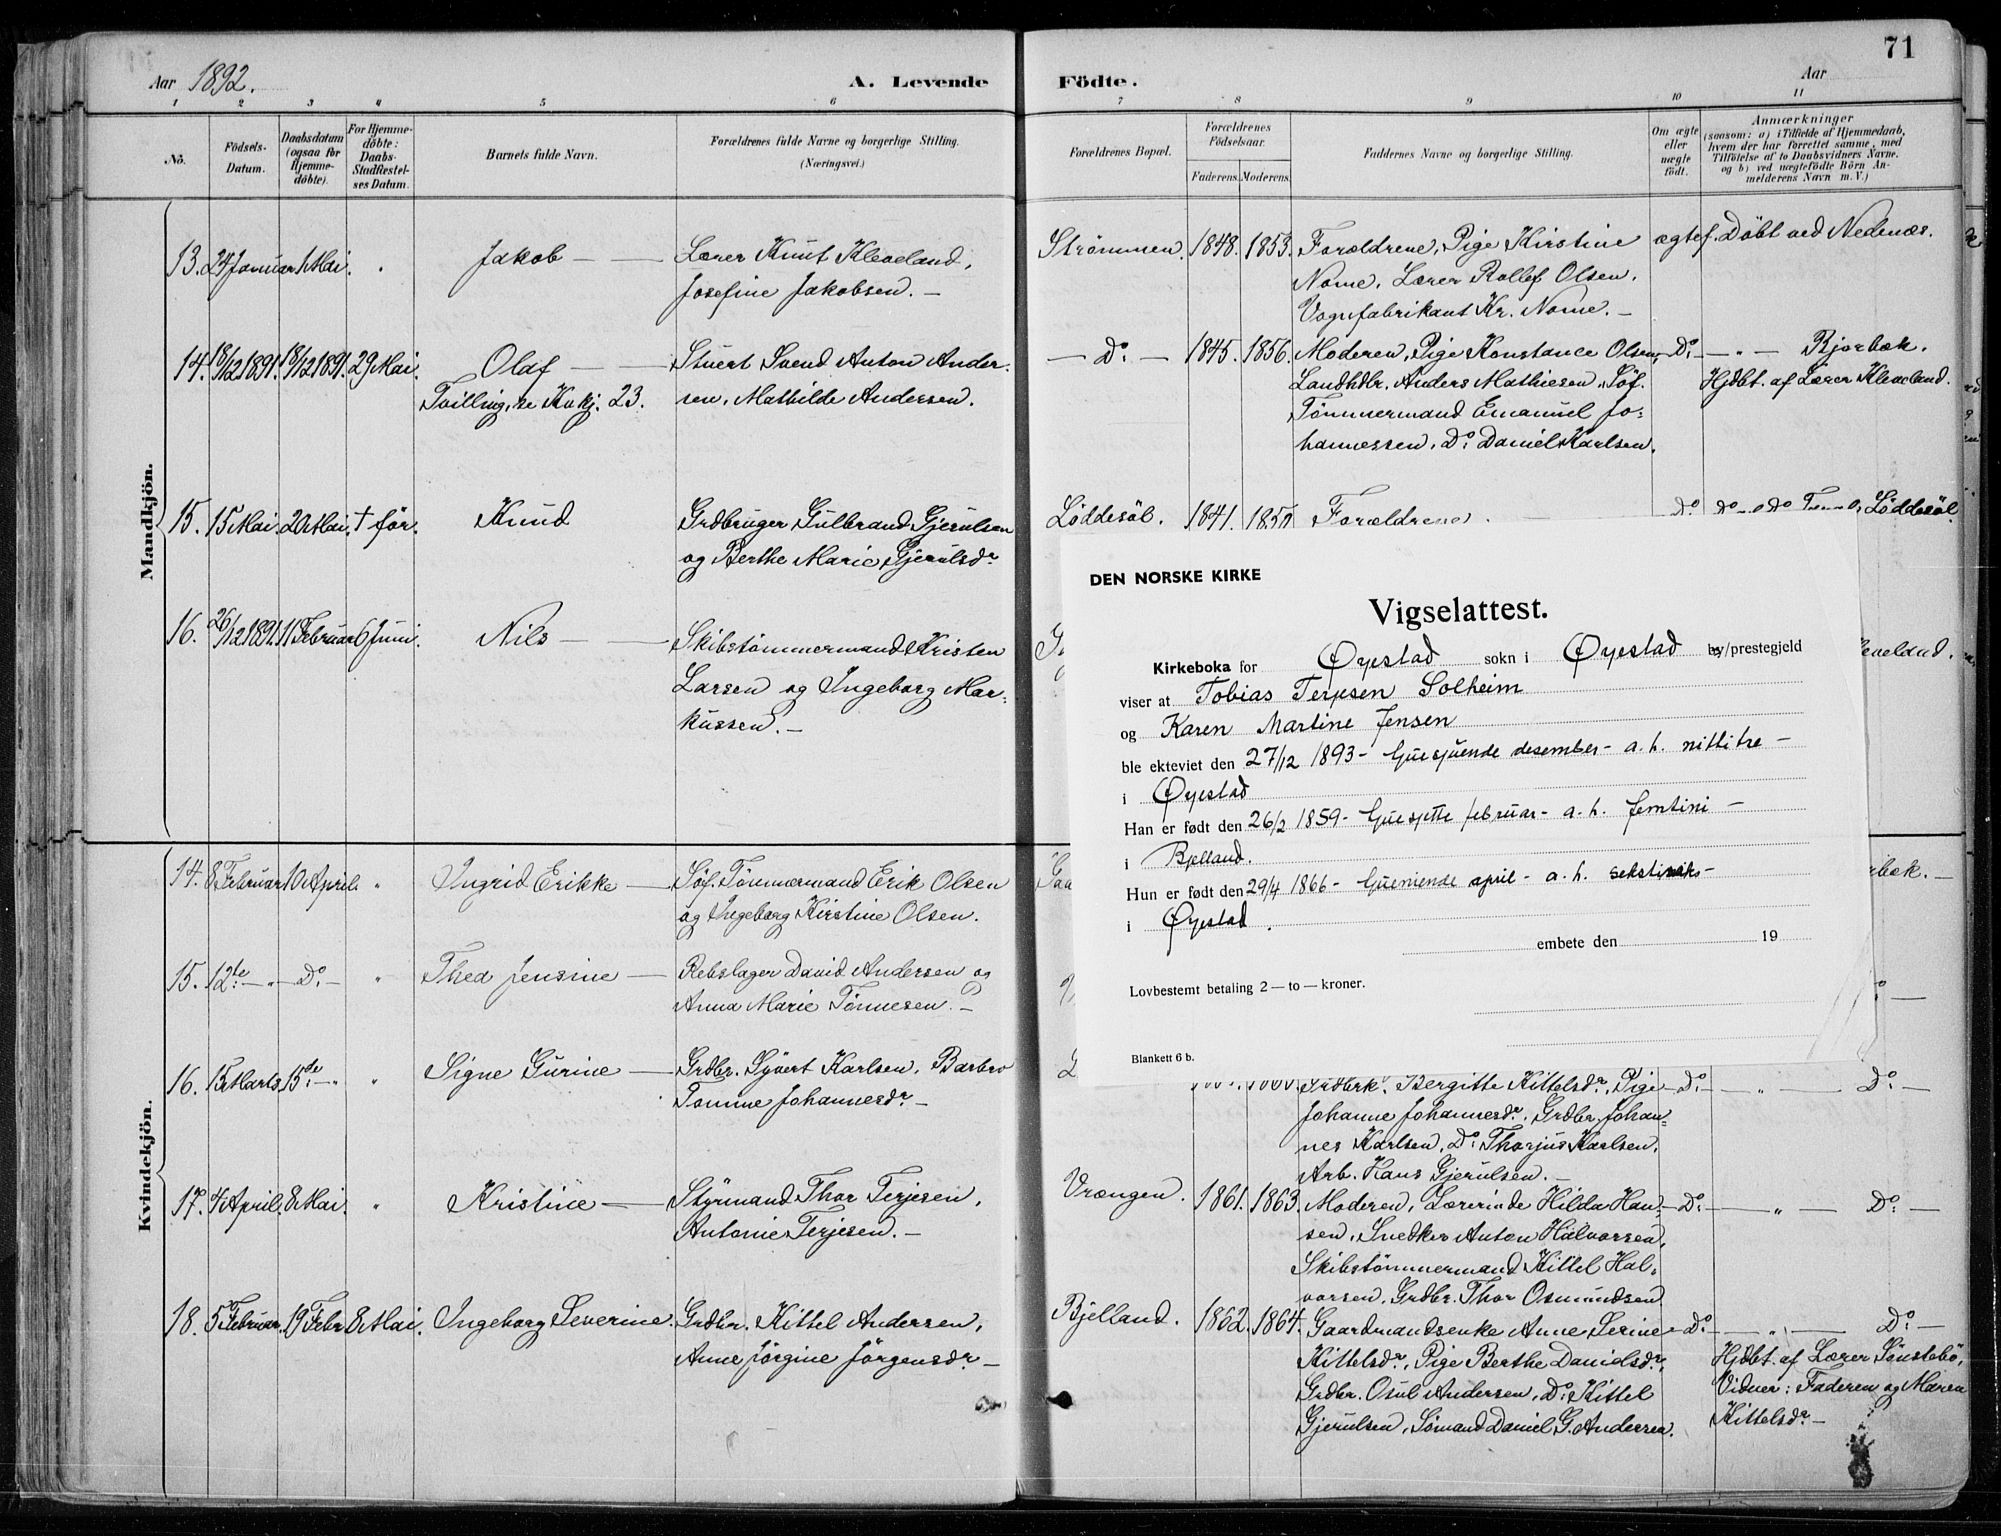 71
Aar 1892.
A. Levende Födte.
Aar
1 2 3 4 5 6 7 8 9 10 11
No.
Födsels-Datum.
Daabsdatum (ogsaa for Hjemme-döbte).
For Hjemme-döbte: Daabs-Stadfæstel-ses Datum.
Barnets fulde Navn.
Forældrenes fulde Navne og borgerlige Stilling. (Næringsvei.)
Forældrenes Bopæl.
Forældrenes Födselsaar.
Faderens. Moderens.
Faddernes Navne og borgerlige Stilling.
Om ægte eller uægte födt.
Anmærkninger
(saasom: a) i Tilfælde af Hjemmedaab,
hvem der har forrettet samme, med
Tilföielse af to Daabsvidners Navne.
og b) ved uægtefödte Börn An-
melderens Navn m. V.)
Mandkjön.
13. 24 Januar 1 Mai. " Jakob — Lærer Knut Kleveland, Strömmen. 1848. 1853. Forældrene, Pige Kirstine ægtef. Döbt ved Nedenæs.
Josefine Jakobsen. — Nome, Lærer Rollef Olsen,
Vognfabrikant Kr. Nome. —
14. 18/12 1891. 18/12 1891. 29 Mai. Olaf — Stuert Svend Anton Ander- — Do: — 1845. 1856. Moderen, Pige Konstance Olsen, Do: — " — Bjorbæk.
Tvilling, se Kvkj. 23. sen, Mathilde Andersen. Landhdlr. Anders Mathiesen, Söf. Hjdbt. af Lærer Kleveland.
Tömmermand Emanuel Jo-
hannessen, Do: Daniel Karlsen.
15. 15 Mai. 20 Mai. † för. Knud Grdbruger Gulbrand Gjerulsen Löddesöl. 1841. 1851 Forældrene. — Do: Löddesöl.
og Berthe Marie Gjerulsdr.
16. 26/12 1891. 11 Februar 6 Juni. Nils — Skibstömmermand Kristen
Larsen og Ingeborg Mar-
kussen. —
DEN NORSKE KIRKE
Vigselattest.
Kirkeboka for Øyestad sokn i Øyestad by/prestegjeld
viser at Tobias Terjesen Solheim
og Karen Martine Jensen
ble ekteviet den 27/12 1893 - tjuesjuende desember - a. h. nittitre -
i Øyestad
Han er født den 26/2 1859 - tjuesjette februar - a. h. femtini -
i Bjelland.
Hun er født den 29/4 1866 - tjueniende april - a. h. sekstiseks -
i Øyestad.
embete den 19
Lovbestemt betaling 2—to—kroner.
Blankett 6 b.
Kvindekjön.
14. 8 Februar 10 April. " Ingrid Erikke — Söf. Tömmermand Erik Olsen
og Ingeborg Kirstine Olsen.
15. 12te — " — Do: — " Thea Jensine — Rebslager David Andersen og
Anna Marie Tönnesen. —
16. 13 Marts 15de — " " Signe Gurine — Grdbr. Syvert Karlsen, Barbro
Tomine Johannesdr. —
Grdbrk. Bergitte Kittelsdr., Pige — Do: — " — Do: —
Johanne Johannesdr., Grdbr. Johan-
nes Karlsen, Do: Thorjus Karlsen,
Arb. Hans Gjerulsen. —
17. 4 April. 8 Mai. " Kristine — Styrmand Thor Terjesen, Vrængen. 1861. 1863. Moderen, Lærerinde Hilda Han- — Do: — " — Do: —
Antonie Terjesen. — sen, Snedker Anton Halvorsen,
Skibstömmermand Kittel Hal-
vorsen, Grdbr. Thor Osmundsen
18. 5 Februar. 19 Febr 8 Mai. Ingeborg Severine. Grdbr. Kittel Andersen, Bjelland. 1862. 1864. Gaardmandsenke Anne Serine — Do: — " — Do: —
Anne Jörgine Jörgensdr. — Kittelsdr., Pige Berthe Danielsdr., Hjdbt. af Lærer Sönstebö,
Grdbr. Osul Andersen, Do: Kittel Vidner: Faderen og Maren
Gjerulsen, Sömand Daniel G. Andersen. Kittelsdr. —